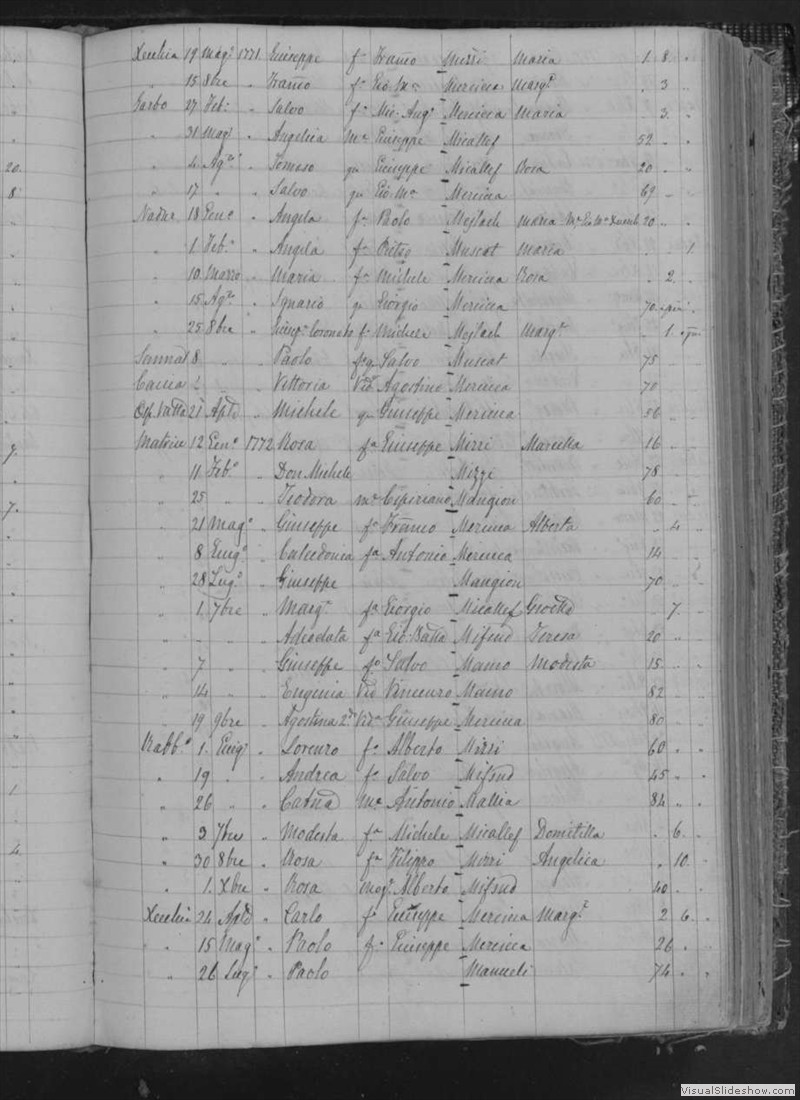 20.
8
9.
7.
1
4.
Xeuchia 19 Mag.º 1771. Giuseppe fº Franco Mizzi Maria 1. 8. "
" 15 8bre " Franco fº Gio Ma Mercieca Marg.ta . 3 .
Garbo 27 Feb.º " Salvo fº Mic. Ang.º Mercieca Maria . 3. .
" 31 Mag.º " Angelica Me Giuseppe Micallef 52 . .
" 4 Ag.to " Tomaso qu Giuseppe Micallef Rosa 20 . .
" 17 " " Salvo qu Gio Ma Mercieca 69 . .
Nadur 18 Gen.º " Angela fa Paolo Mejlach Maria 20 . .
" 1. Feb.º " Angela fa Pietro Muscat Maria . . 1.
" 10 Marzo " Maria fa Michele Mercieca Rosa . 2. .
" 15 Ag.to " Ignazio qu Giorgio Mercieca 70.
" 25 8bre " fº Michele Mejlach Marg.ta . 1.
Sannat 8 " " Paolo Salvo Muscat 75
Caccia 2 " " Vittoria Vid.ª Agostino Mercieca 70
21 " Michele qu Giuseppe Mercieca 56
Matrice 12 Gen.º 1772 Rosa fa Giuseppe Mizzi Marcella 16
" 11 Feb.º " Don Michele Mizzi 78
" 25 " " Teodora me Cipriano Mangion 60
" 21 Mag.º " Giuseppe fº Franco Mercieca Alberta . 4 .
" 8 Giug.º " Calcedonia fa Antonio Mercieca 14
" 28 Lug.º " Giuseppe Mangion 70
" 1. 7bre " Marg.ta fa Giorgio Micallef . 7. .
" " " Adeodata fa Gio: Batta Mifsud Teresa 20
" 7 " " Giuseppe fº Salvo Mamo Modesta 15
" 14 " " Eugenia Vid Vincenzo Mamo 82
" 19 9bre " Agostina Vid.ª Giuseppe Mercieca 80
Rabb.º 1. Giug.º " Lorenzo fº Alberto Mizzi 60
" 19 " " Andrea fº Salvo Mifsud 45
" 26 " " Catna Me Antonio Mallia 84
" 3 7bre " Modesta fa Michele Micallef Domitilla . 6. .
" 30 8bre " Rosa fa Filippo Mizzi Angelica . 10. .
" 1. Xbre " Rosa mog.e Alberto Mifsud 40
Xeuchia 24 " Carlo fº Giuseppe Mercieca Marg.ta 2 6. .
" 15 Mag.º " Paolo fº Giuseppe Mercieca 26
" 26 Lug.º " Paolo Manueli 74
VisualSlideshow.com